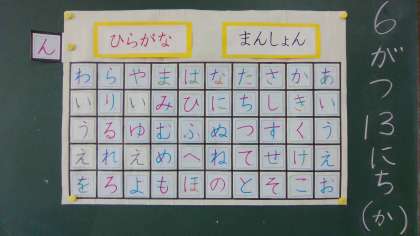 ひらがな まんしょん
ん
わ ら や ま は な た さ か あ
い り い み ひ に ち し き い
う る ゆ む ふ ぬ つ す く う
え れ え め へ ね て せ け え
を ろ よ も ほ の と そ こ お
6がつ13にち(か)